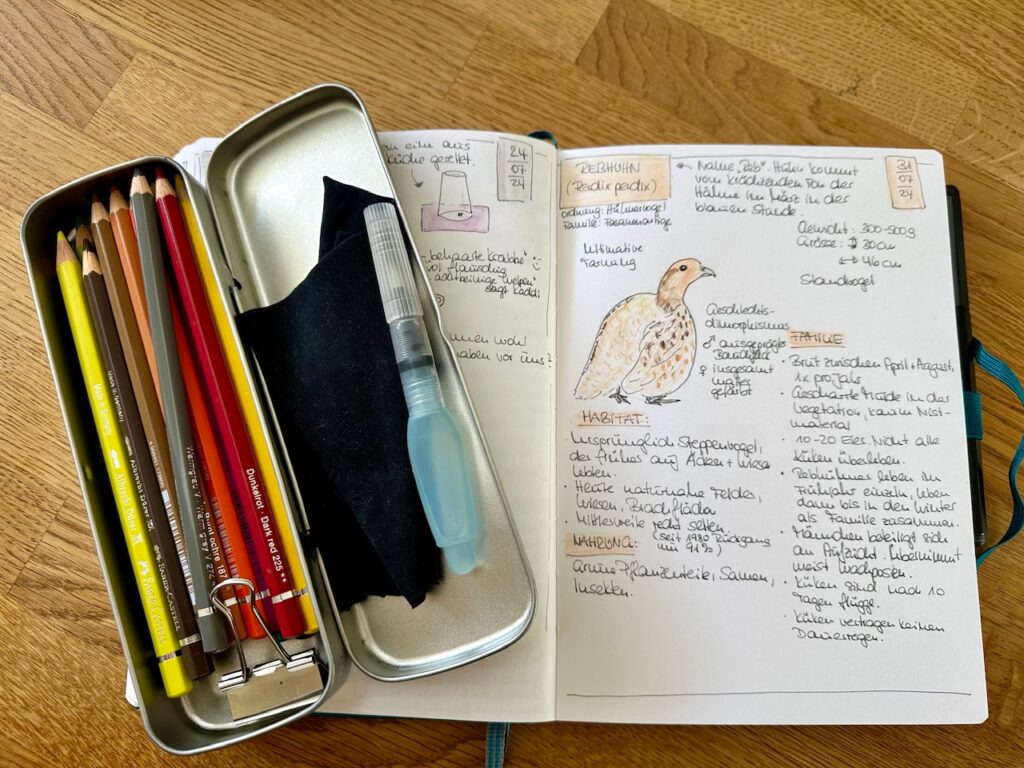 eine aus
Küche gerettet.
24
07
24
"behaarte Krabbe"
voll flauschig
achtbeinige Welpen"
sagt Kaddi
wohl
haben vor uns?
REBHUHN
(Perdix perdix)
Ordnung: Hühnervogel
Familie: Fasanenartige
Name "Reb"-Huhn kommt
vom krächzenden Ton der
Hähne im März in der
blauen Stunde.
31
07
24
Gewicht: 300-500g
Grösse: 30cm
↔ 46cm
Standvogel
Ultimative
Tarnung
Geschlechts-
dimorphismus
♂ ausgeprägter
♀ insgesamt
matter
gefärbt
HABITAT:
• Ursprünglich Steppenvogel,
der früher auf Äckern + Wiesen
lebten.
• Heute naturnahe Felder,
Wiesen, Brachflächen
• Mittlerweile recht selten.
(seit 1980 Rückgang
um 91%)
NAHRUNG:
Grüne Pflanzenteile, Samen,
Insekten.
FAMILIE
• Brut zwischen April + August,
1x pro Jahr
• Gescharrte Mulde in der
Vegetation, kaum Nist-
material
• 10-20 Eier. Nicht alle
Küken überleben.
• Rebhühner leben im
Frühjahr einzeln, leben
dann bis in den Winter
als Familie zusammen.
• Männchen beteiligt sich
an Aufzucht. Übernimmt
meist Wachposten.
• Küken sind nach 10
Tagen flügge.
• Küken vertragen keinen
Dauerregen.
Made in Germany
Albrecht Dürer
FABER-CASTELL
Made in Germany
Albrecht Dürer
FABER-CASTELL
Warmgrau V · Warm grey V 274
Burnt ochre 187
Dunkelrot · Dark red 225 **